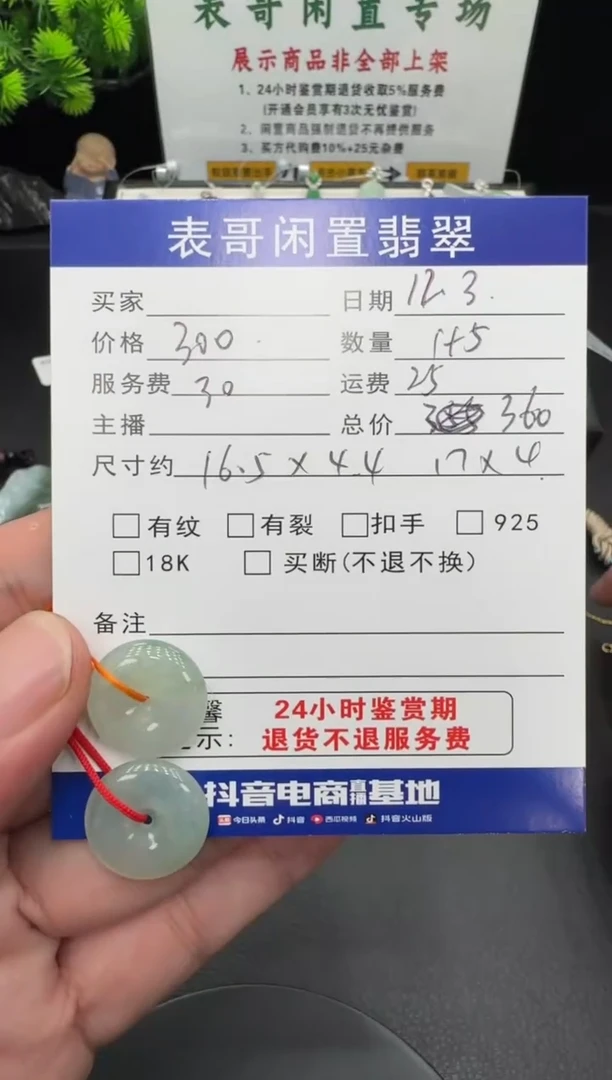 表哥闲置专场
展示商品非全部上架
1、24小时鉴赏期退货收取5%服务费
(开通会员享有3次无忧鉴赏)
2、闲置商品强制退货不再提供服务
3、买方代购费10%+25元杂费
表哥闲置翡翠
买家 日期 12.3.
价格 300 数量 1+5
服务费 30 运费 25
主播 总价 360
尺寸约 16.5×4.4 17×4.
有纹 有裂 扣手 925
18K 买断(不退不换)
备注
馨 24小时鉴赏期
示: 退货不退服务费
抖音电商直播基地
今日头条 抖音 西瓜视频 抖音火山版